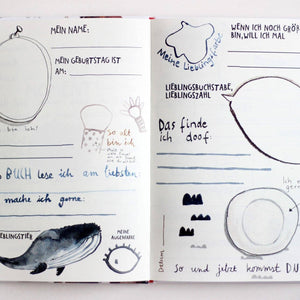 MEIN NAME:
MEIN GEBURTSTAG IST
AM:
bin ich!
so alt
bin ich
BUCH lese ich am liebsten:
mache ich gerne:
LIEBLINGSTIER
MEINE
AUGENFARBE
Meine Lieblingsfarbe
WENN ICH NOCH GRÖßER
BIN, WILL ICH MAL
LIEBLINGSBUCHSTABE,
LIEBLINGSZAHL
Das finde
ich doof:
Datum
So und jetzt kommst DU